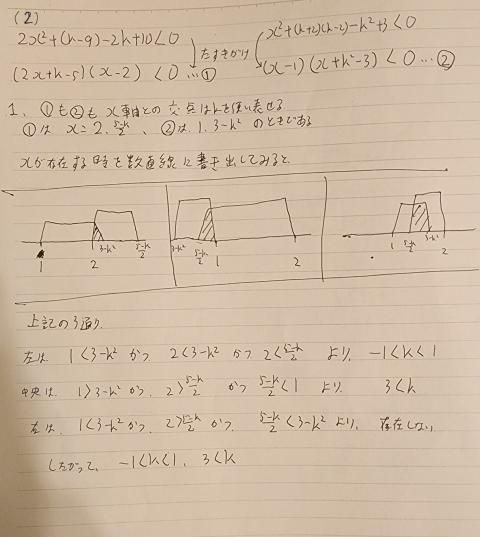 (2)
2x²+(k-9)-2k+10<0
x²+(k+2)(k-2)-k²+3<0
たすきがけ
(2x+k-5)(x-2) <0 …①
(x-1)(x+k²-3) <0 …②
1. ①も②も x軸との 交点はkを使い表せる
①は x=2, 5-k/2 、 ②は 1, 3-k² のときである
xが存在する時を数直線に書き出してみると
1 2 3-k² 5-k/2
3-k² 5-k/2 1 2
1 5-k/2 3-k² 2
上記の3通り
左は 1<3-k² かつ 2<3-k² かつ 2<5-k/2 より、 -1<k<1
中央は、 1>3-k² かつ、 2>5-k/2 かつ 5-k/2<1 より 3<k
右は、 1<3-k² かつ、 2>5-k/2 かつ、 5-k/2<3-k² より、 存在しない
したがって、 -1<k<1, 3<k